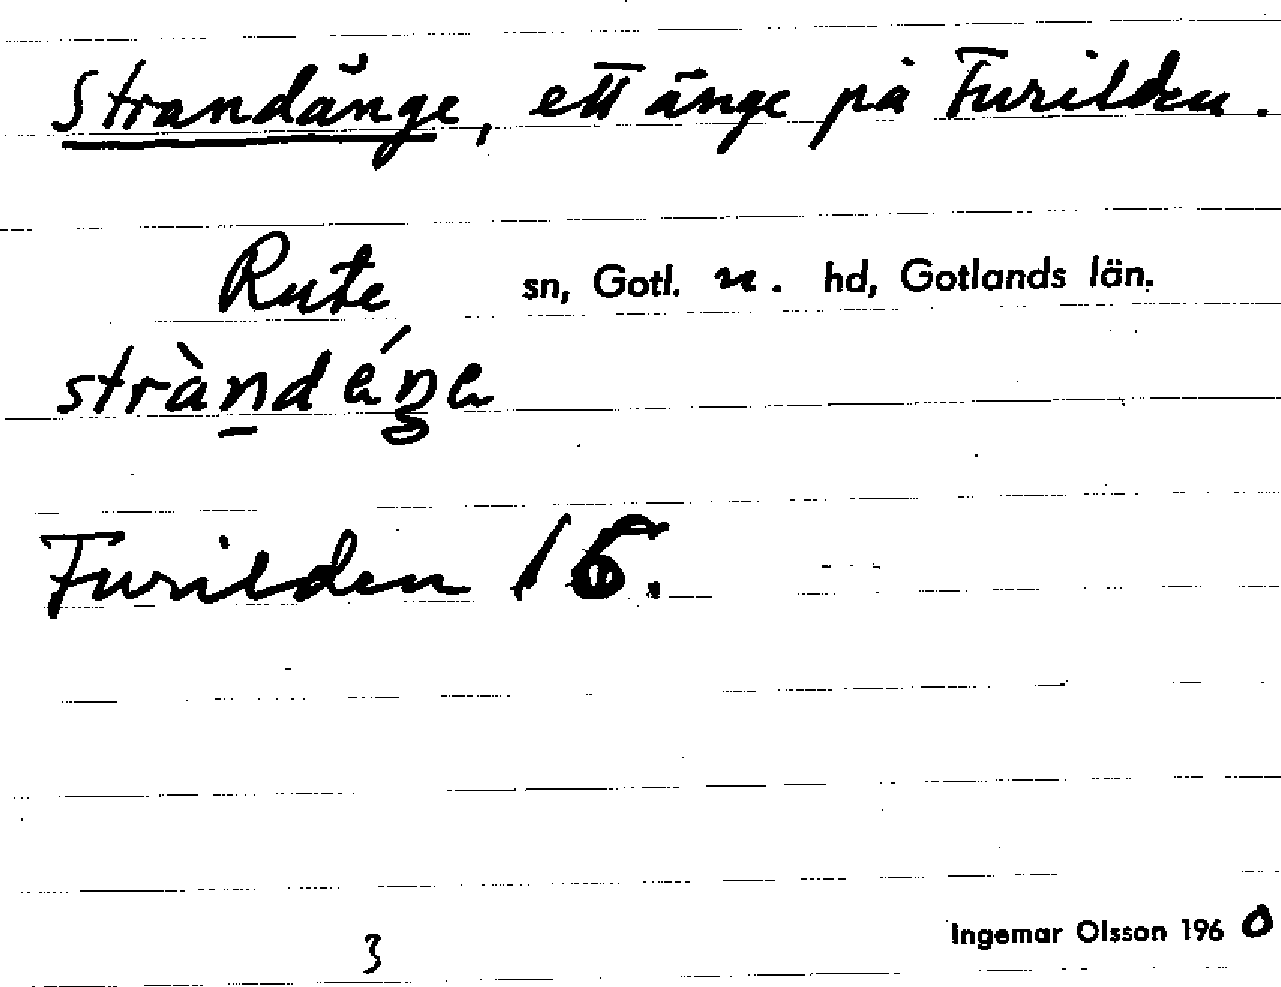 Strandänge, ett änge på Furilden.
Rute sn, Gotl. n. hd, Gotlands län.
stràn̲déŋa
Furilden 16.
Ingemar Olsson 1960
3